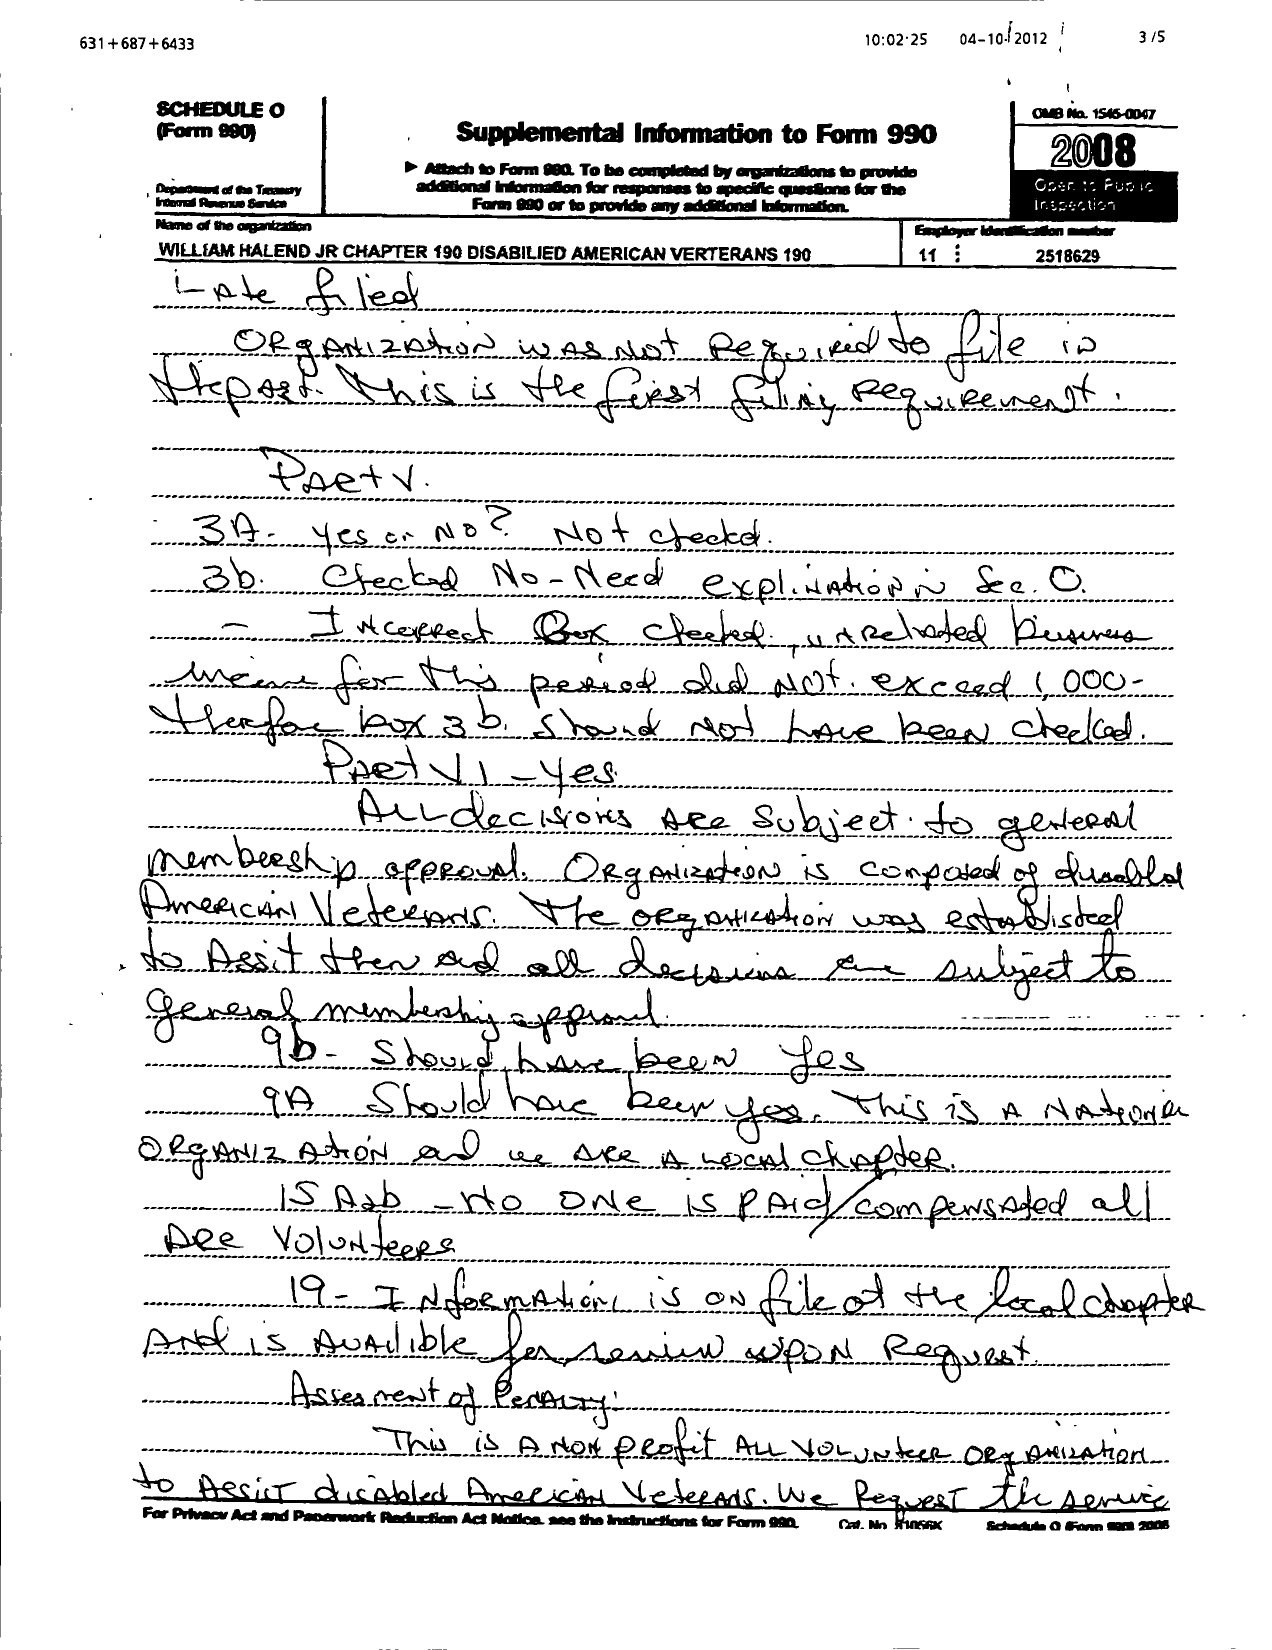 631+687+6433 10:02:25 04-10-2012 3/5
SCHEDULE O
(Form 990)
Department of the Treasury
Internal Revenue Service
Supplemental Information to Form 990
► Attach to Form 990. To be completed by organizations to provide
additional information for responses to specific questions for the
Form 990 or to provide any additional information.
OMB No. 1545-0047
2008
Open to Public
Inspection
Name of the organization
WILLIAM HALEND JR CHAPTER 190 DISABILIED AMERICAN VERTERANS 190
Employer identification number
11 : 2518629
Late filed
Organization was not Required to file in
the past. This is the first filing Requirement.
Part V.
3A- yes or No? Not checked.
3b. Checked No - Need explination in Sec. O.
- Incorrect Box checked, unrelated business
income for this period did not exceed 1,000-
therfor box 3b. should not have been checked.
Part VI - yes
All decisions are subject to general
membership approval. Organization is composed of disabled
American Veterans. The organization was established
to Assit them and all decisions are subject to
general membership approval.
9b- Should have been Yes
9A Should have been yes. This is a National
Organization and we are a local chapter.
15 A&b - No one is paid/compensated all
are Volunteers
19- Information is on file at the local chapter
And is Available for review upon Request.
Assesment of Penalty:
This is a non profit all volunteer organization
to Assist disabled American Veterans. We Request the service
For Privacy Act and Paperwork Reduction Act Notice, see the Instructions for Form 990. Cat. No. 51056K Schedule O (Form 990) 2008